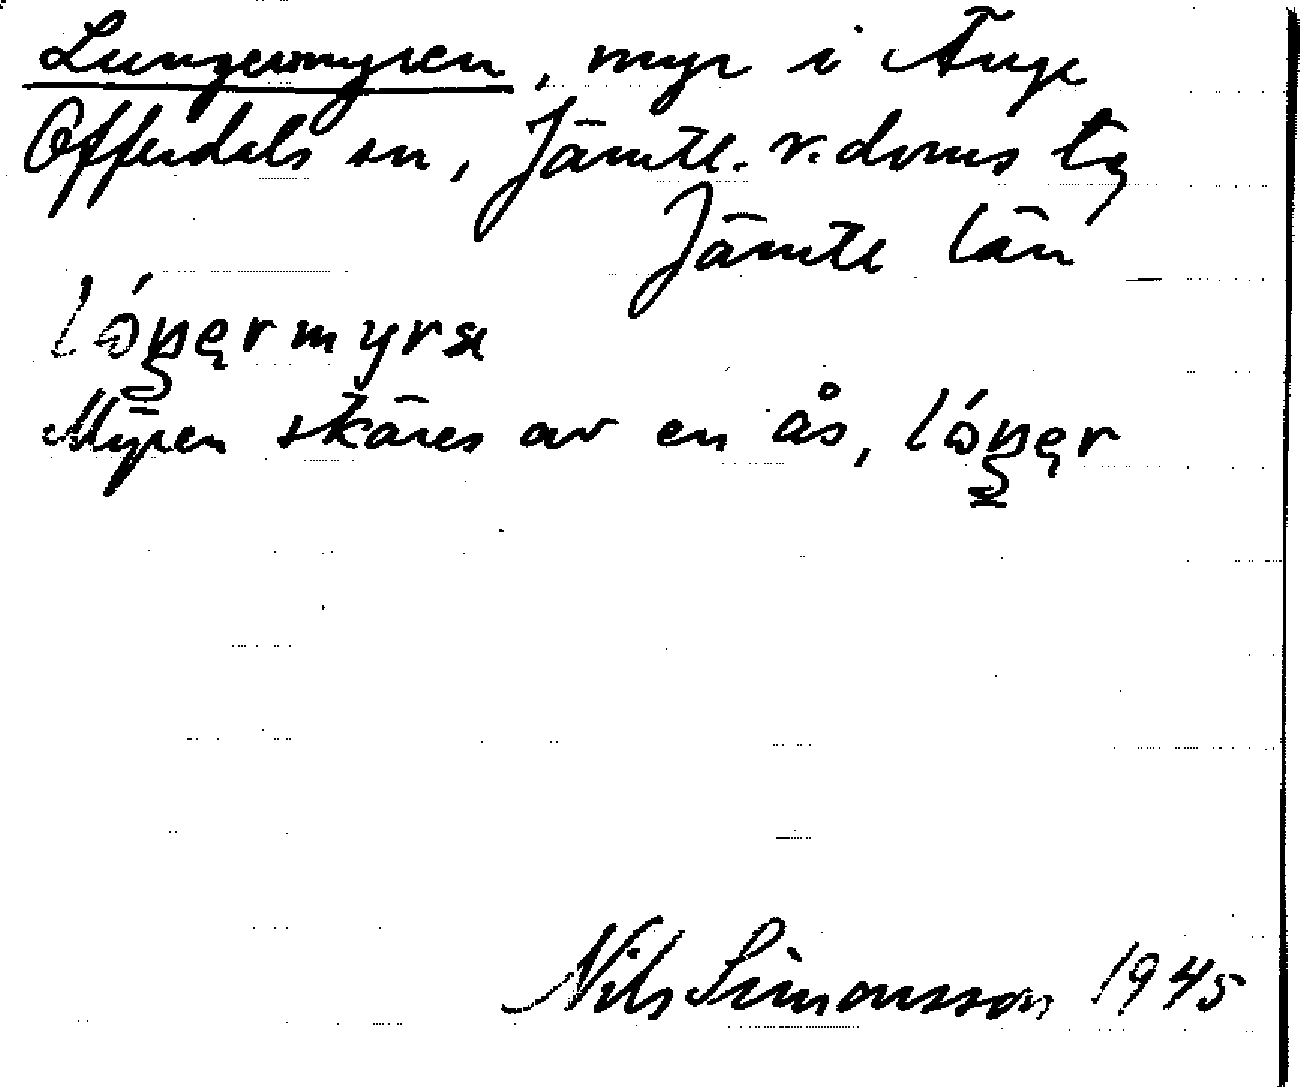 Lungermyren, myr i Änge
Offerdals sn, Jämtl. v. doms tg
Jämtl län
Myren skäres av en ås,
Nils Simonsson 1945